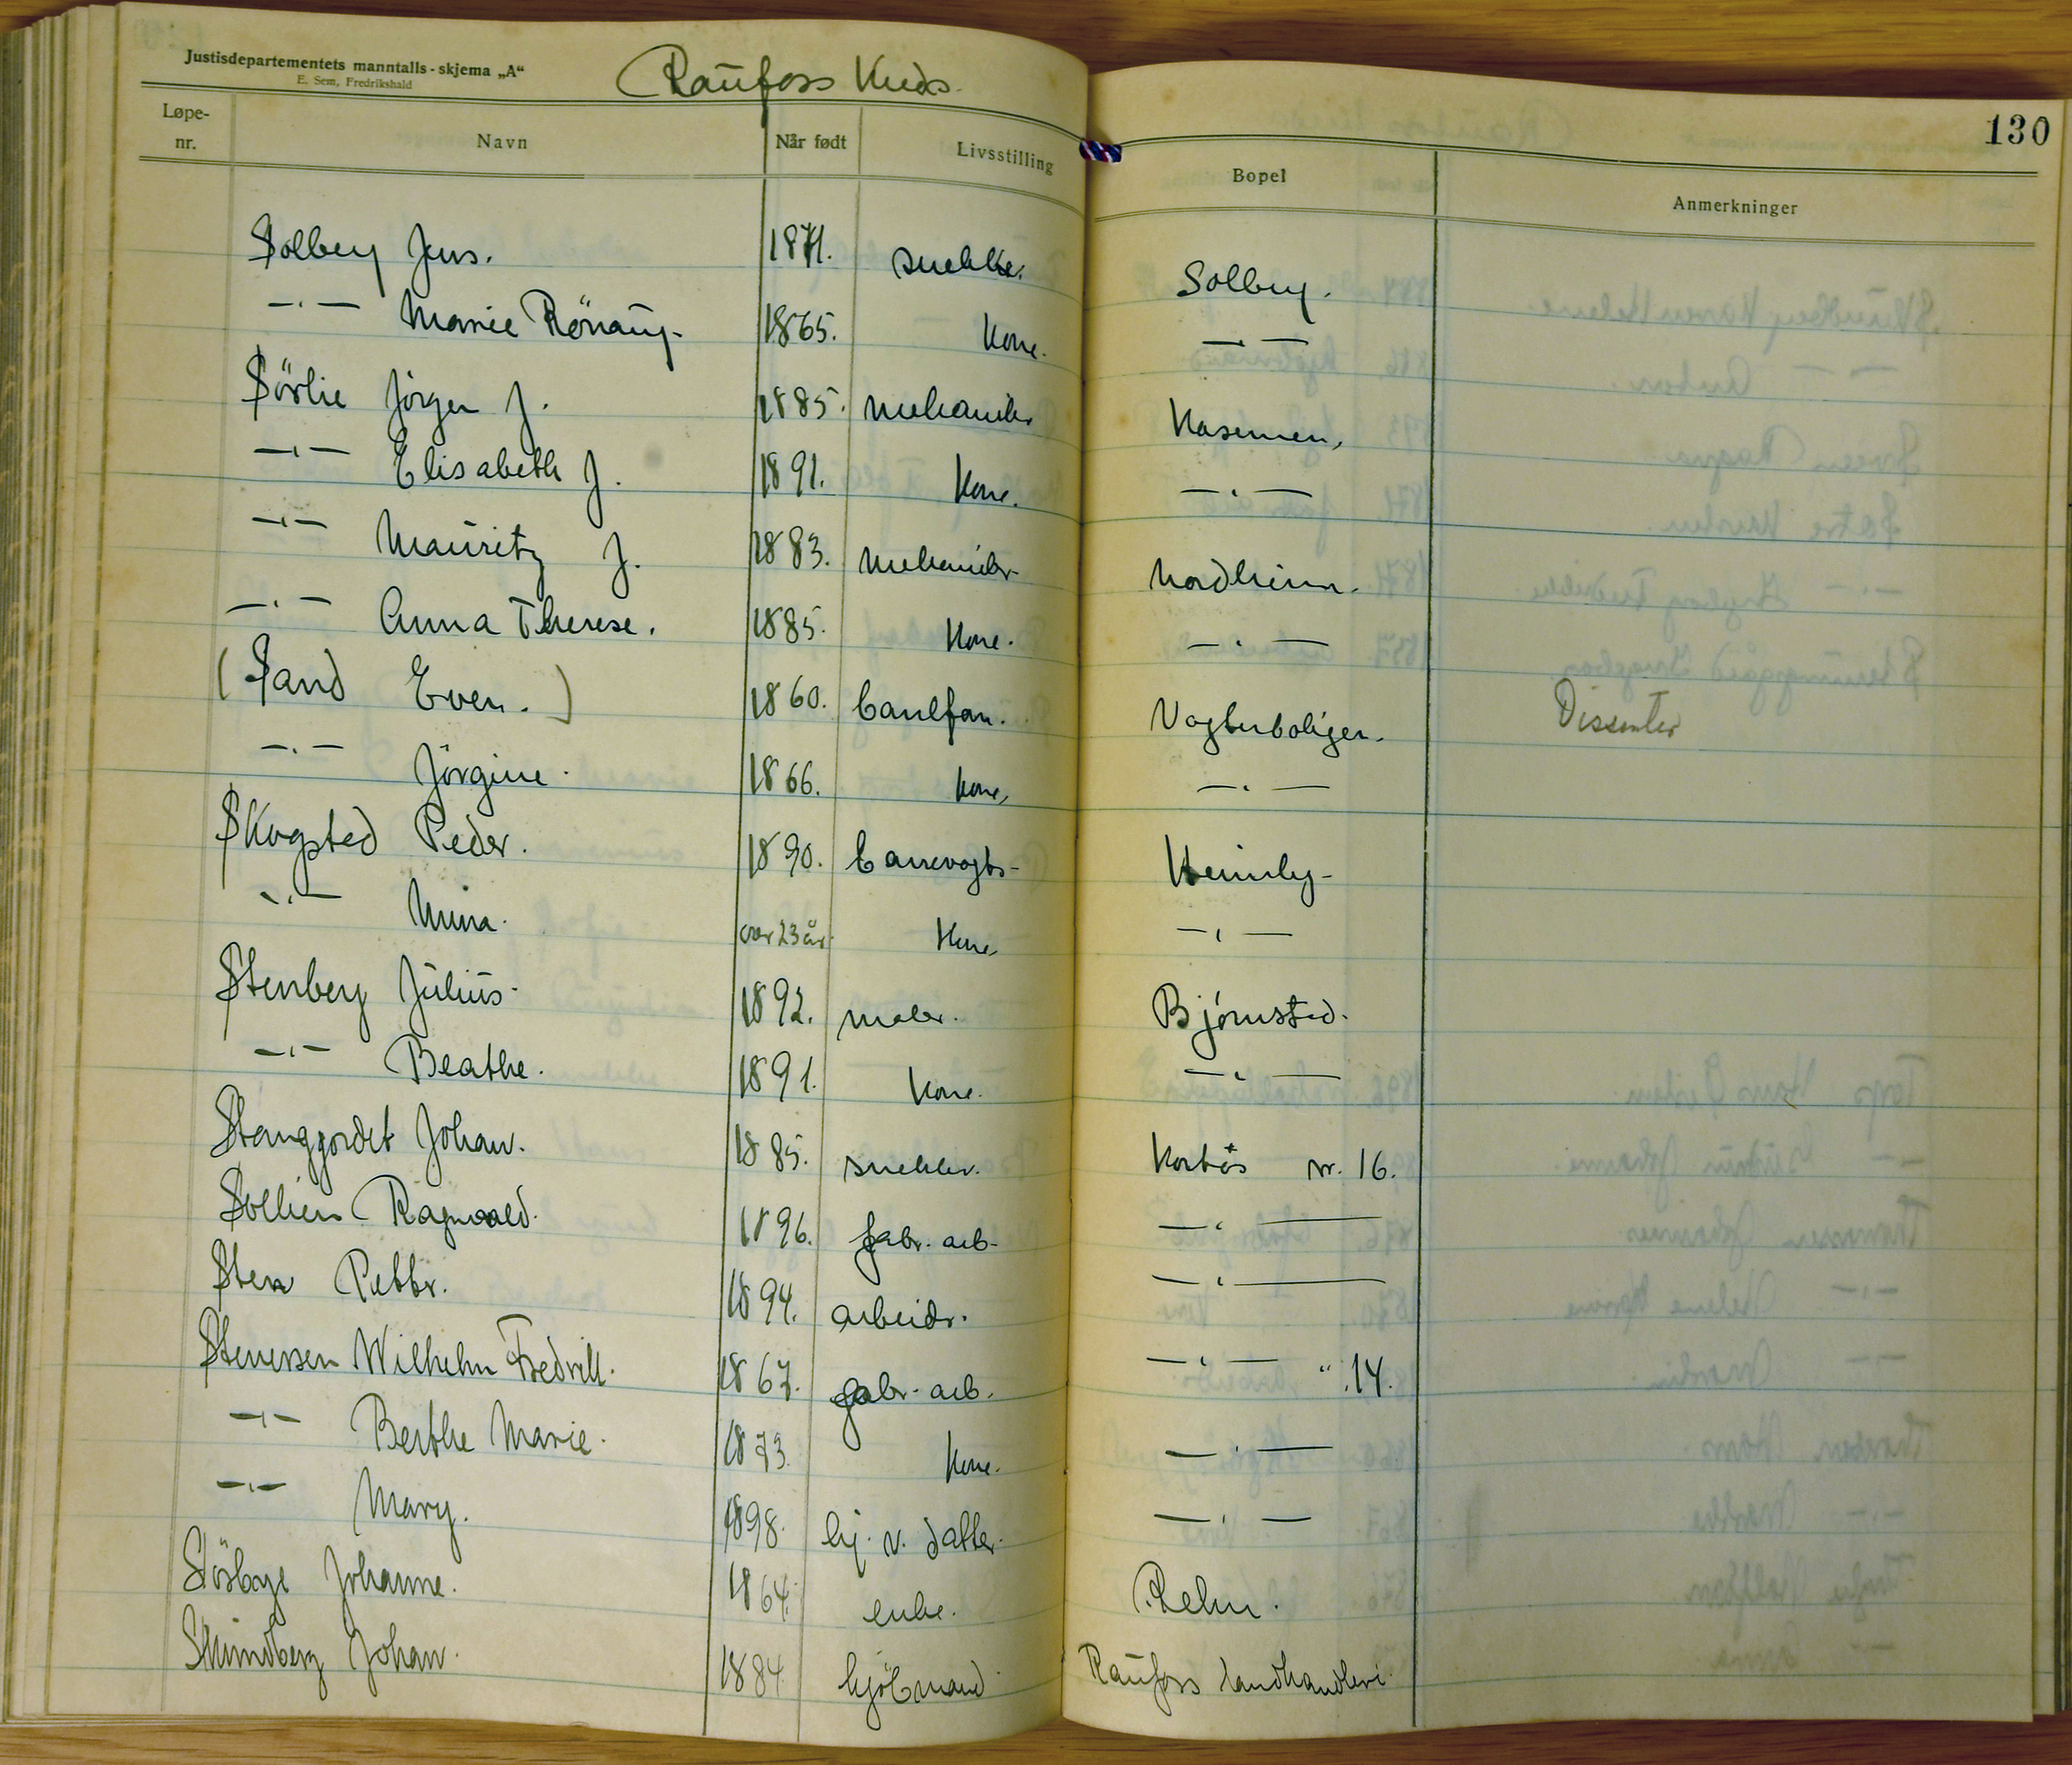 Justisdepartementets manntalls-skjema „A“
E. Sem, Fredrikshald
Raufoss Kreds.
130
Løpe-nr. Navn Når født Livsstilling Bopel Anmerkninger
Solberg Jens. 1871. snekker. Solberg.
—"— Marie 1865. Kone. —"—
Sörlie Jörgen J. 1885. mekaniker Kasernen,
—"— Elisabeth J. 1891. Kone. —"—
—"— Mauritz J. 1883. mekaniker Nordheim.
—"— Anna Therese. 1885. Kone. —"—
(Sand Even.) 1860. Vogterboligen. Dissenter
—"— Jörgine. 1866. kone, —"—
Skogsted Peder. 1890. banevogts- Heimly-
—"— Mina. over 23 år. Kone, —"—
Stenberg Julius. 1892. maler. Björnsted.
—"— Beathe. 1891. Kone. —"—
Stanggordet Johan. 1885. snekker. nr. 16.
Sollien Ragnvald. 1896. fabr. arb- —"—
Sten Petter. 1894. arbeidr. —"—
Stenersen Wilhelm Fredrik. 1867. fabr- arb. —"— " 14.
—"— Berthe Marie. 1873. Kone. —"—
—"— Mary. 1898. hj. v. datter. —"—
Johanne. 1864. enke.
Johan. 1884 kjöbmand Raufoss landhandleri.